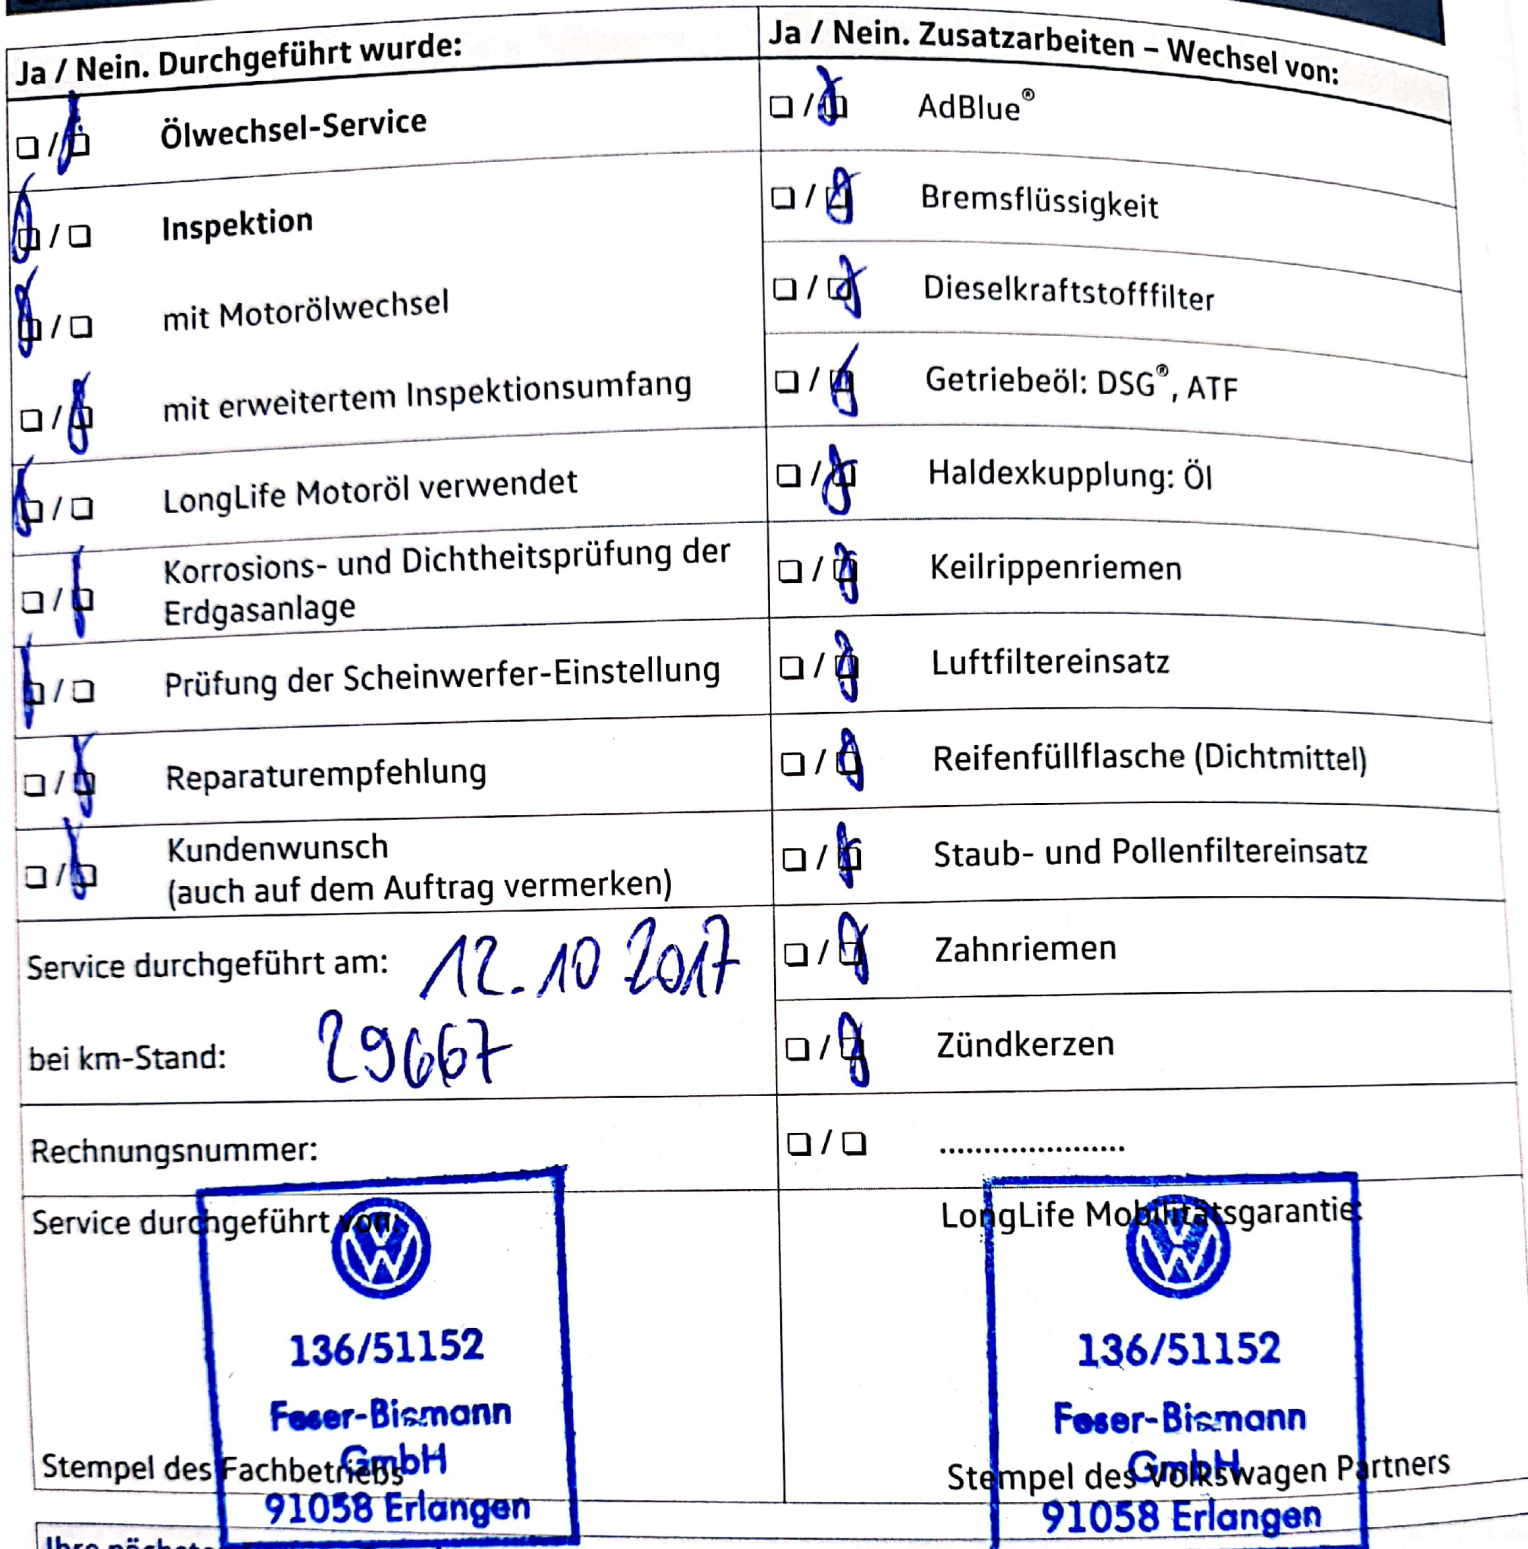 Ja / Nein. Durchgeführt wurde:
☐ / ☒ Ölwechsel-Service
☒ / ☐ Inspektion
☒ / ☐ mit Motorölwechsel
☐ / ☒ mit erweitertem Inspektionsumfang
☒ / ☐ LongLife Motoröl verwendet
☐ / ☒ Korrosions- und Dichtheitsprüfung der
Erdgasanlage
☒ / ☐ Prüfung der Scheinwerfer-Einstellung
☐ / ☒ Reparaturempfehlung
☐ / ☒ Kundenwunsch
(auch auf dem Auftrag vermerken)
Service durchgeführt am: 12.10 2017
bei km-Stand: 29667
Rechnungsnummer:
Service durchgeführt von:
136/51152
Feser-Biemann
GmbH
91058 Erlangen
Stempel des Fachbetriebs
Ja / Nein. Zusatzarbeiten – Wechsel von:
☐ / ☒ AdBlue®
☐ / ☒ Bremsflüssigkeit
☐ / ☒ Dieselkraftstofffilter
☐ / ☒ Getriebeöl: DSG®, ATF
☐ / ☒ Haldexkupplung: Öl
☐ / ☒ Keilrippenriemen
☐ / ☒ Luftfiltereinsatz
☐ / ☒ Reifenfüllflasche (Dichtmittel)
☐ / ☒ Staub- und Pollenfiltereinsatz
☐ / ☒ Zahnriemen
☐ / ☒ Zündkerzen
☐ / ☐ .....................
LongLife Mobilitätsgarantie:
136/51152
Feser-Biemann
GmbH
91058 Erlangen
Stempel des Volkswagen Partners